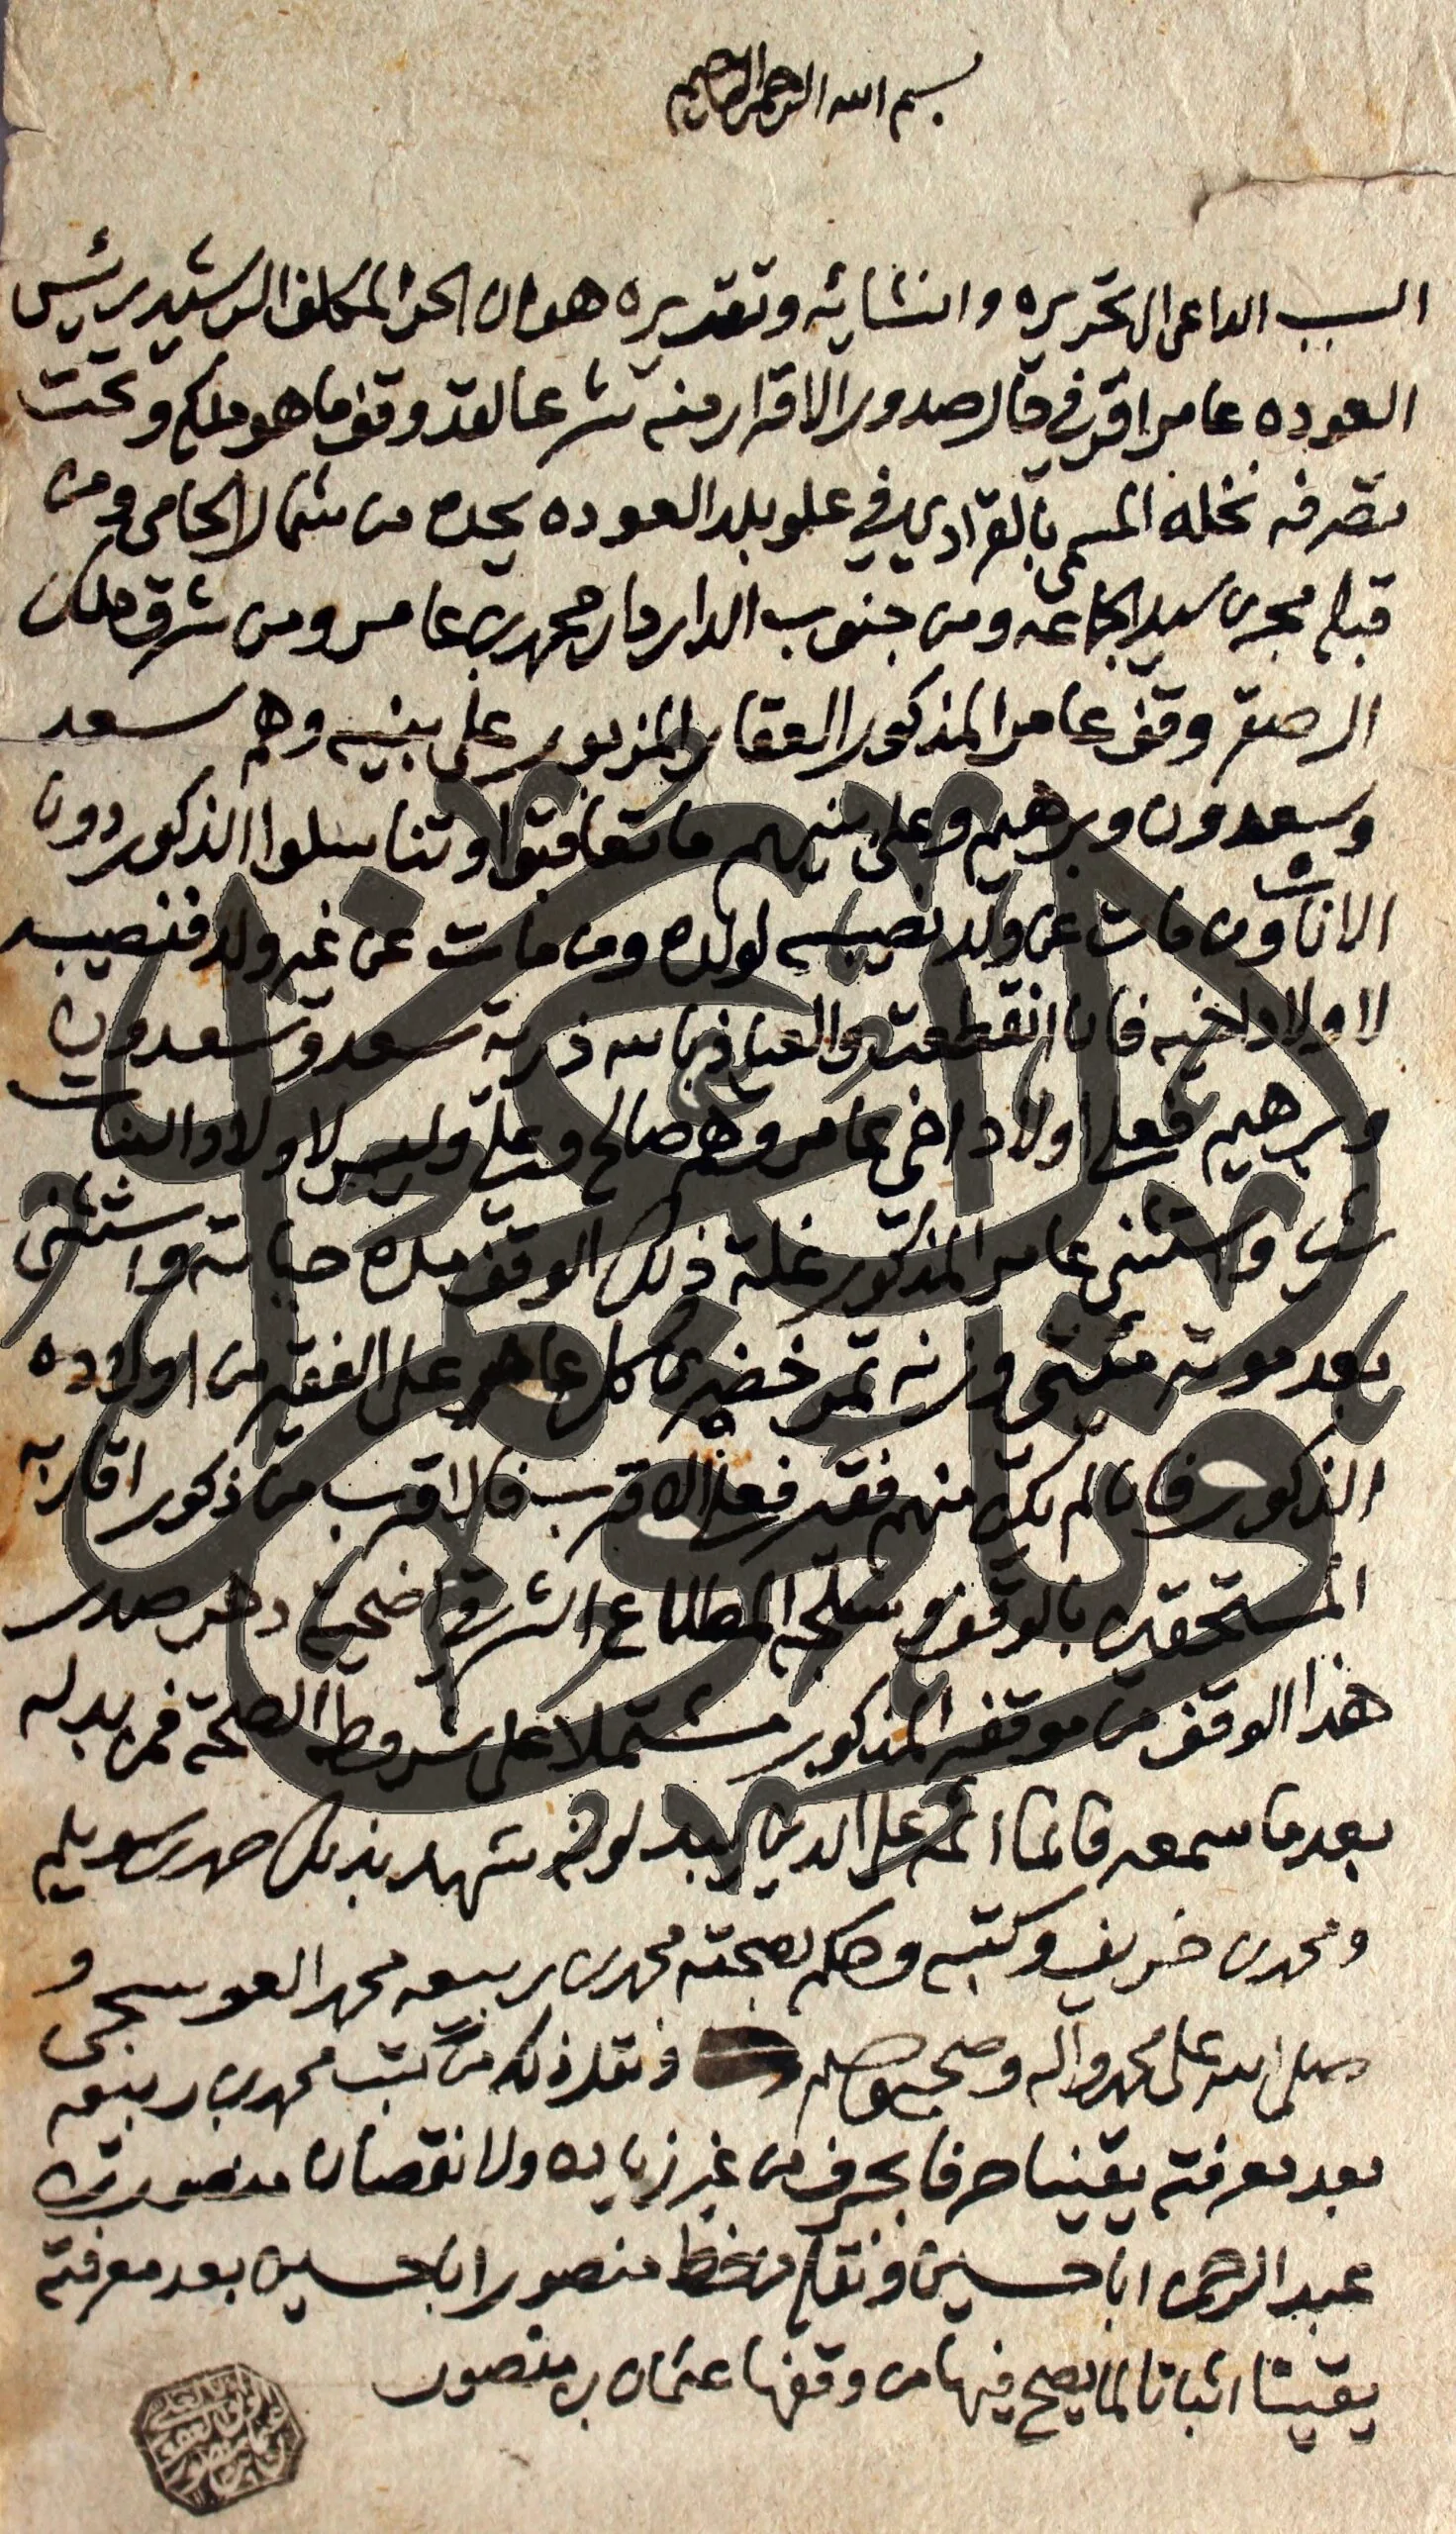 بسم الله الرحمن الرحيم
السبب الداعي الى تحريره وانشائه وتقديره هو ان الحر المكلف الرشيد رئيس
العوده عامر اقر في حال صدور الاقرار منه شرعا لقد وقف ما هو ملكه وتحت
تصرفه نخله المسمى بالقرادي في علو بلد العوده يحده من شمال الحامي ومن
قبله مجرى سيل الجماعه ومن جنوب الدار دار محمد بن عامر ومن شرق ملك
ال صقر وقف عامر المذكور العقار المزبور على بنيه وهم سعد
وسعدون وبرهيم وعلى بنيهم ما تعاقبوا وتناسلوا الذكور دون
الاناث ومن مات عن ولد نصيبه لولده ومن مات عن غير ولد فنصيبه
لاولاد اخيه فان انقطعت والعياذ بالله ذرية سعد وسعدون
وبرهيم فعلى اولاد اخي عامر وهم صالح وعلي وليس لاولاد البنات
شي واستثنى عامر المذكور غلة ذلك الوقف مدة حياته واستثنى
بعد موته ميتي وزنه تمر خضري كل عام على الفقير من اولاده
الذكور فان لم يكن منهم فقير فعلى الاقرب فالاقرب من ذكور اقاربه
المستحقين بالوقف المطلاع الشرقي اضحية دهر صدر
هذا الوقف من موقفه المذكور مشتملا على شروط الصحة فمن بدله
بعد ما سمعه فانما اثمه على الذين يبدلونه شهد بذلك حمد بن سويلم
ومحمد بن خريف وكتبه وحكم بصحته محمد بن ربيعه محمد العوسجي و
صلى الله على محمد وآله وصحبه وسلم ونقل ذلك من كتب محمد بن ربيعه
بعد معرفته يقينا حرفا بحرف من غير زياده ولا نقصان منصور بن
عبد الرحمن ابا حسين ونقله من خط منصور ابا حسين بعد معرفته
يقينا اثباتا لما يصح فيها من وقفها عثمان بن منصور